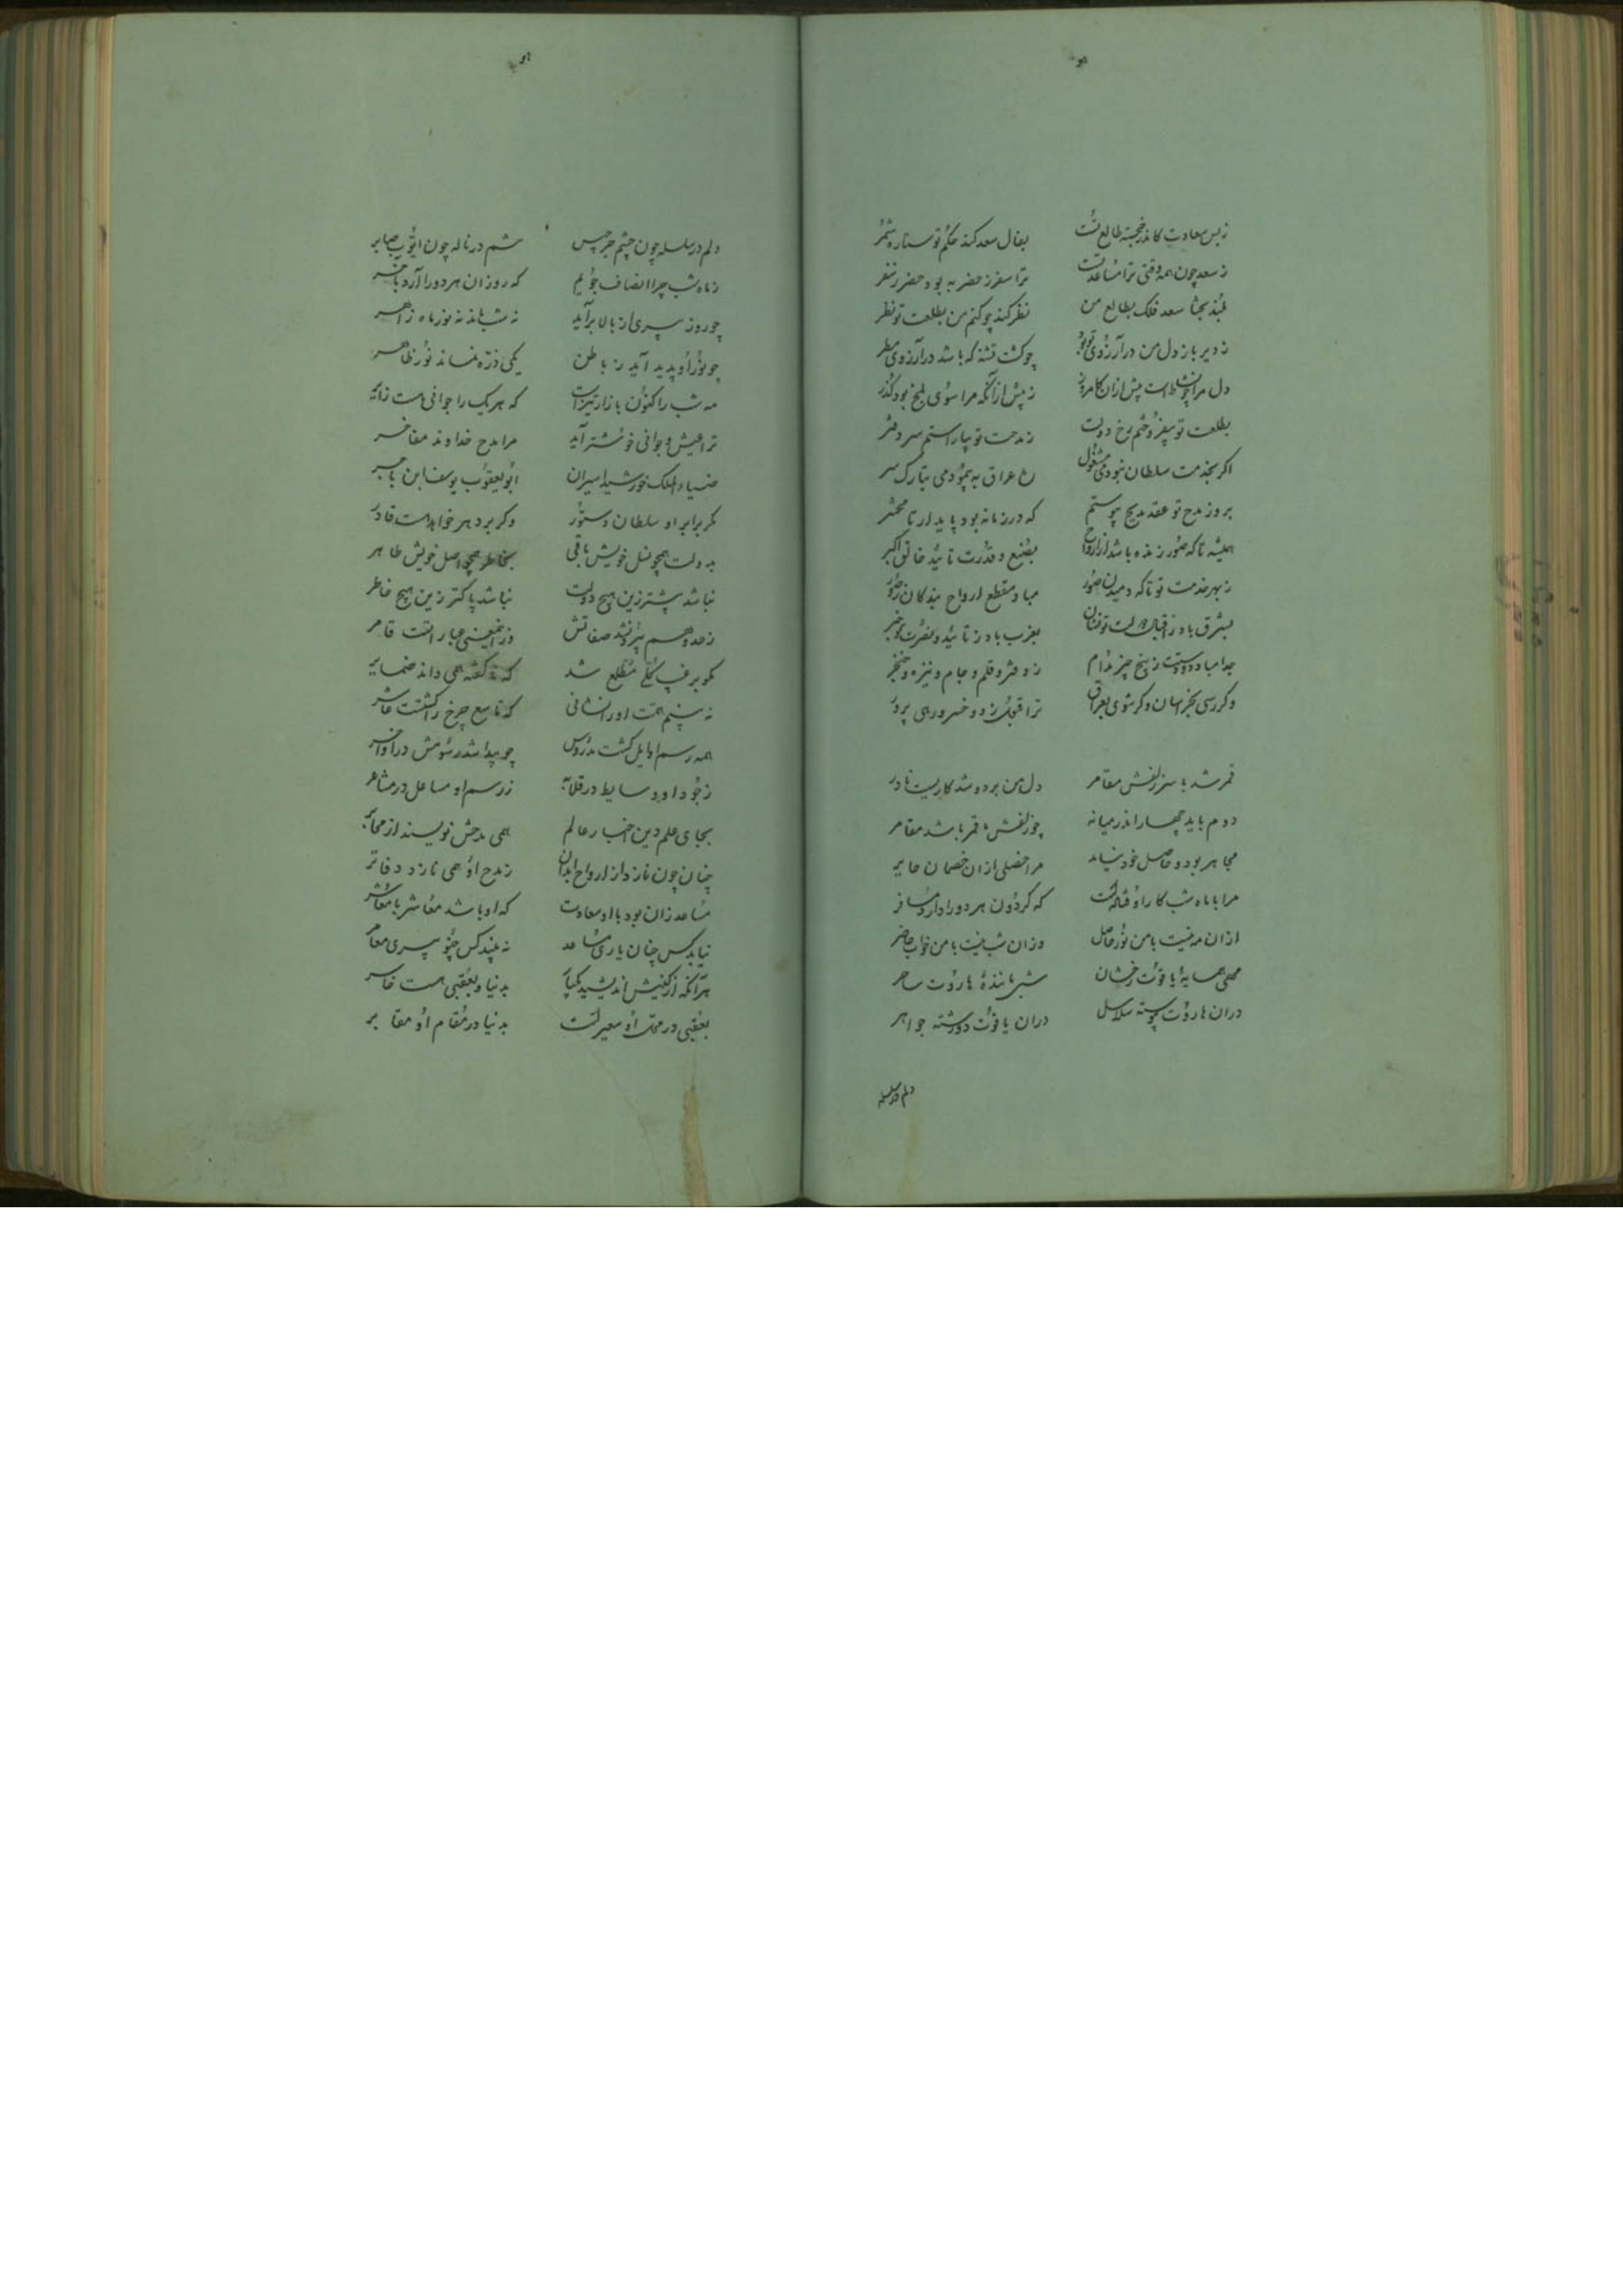 زبس سعادت کاندر خجسته طالع تست بفال سعد کند حکم تو ستاره شمر
ز سعد چون همه وقتی ترا مساعدتست ترا سفر ز حضر به بود حضر ز سفر
بلند بختا سعد فلک بطالع من نظر کند چو کنم من بطلعت تو نظر
ز دیر باز دل من در آرزوی تو بود چو کشت تشنه که باشد در آرزوی مطر
دل مرا چو نشاط است پیش ازان کامروز ز پیش از آنکه مرا سوی بلخ بود گذر
بطلعت تو بیفروختم رخ دولت ز مدحت تو بیاراستم سر دفتر
اگر بخدمت سلطان نبودمی مشغول ره عراق به پیمودمی بتارک سر
بروز مدح تو عقد مدیح پیوستم که در زمانه بود پایدار تا محشر
همیشه تا که صور زنده باشد از ارواح بصنع و قدرت تائید خالق اکبر
ز بهر خدمت تو تا که دمیدن صور مباد منقطع ارواح بندگان ز صور
بشرق باد ز اقبال دولت تو نشان بغرب باد ز تائید و نصرت تو خبر
جدا مباد دو دستت ز پنج چیز مدام ز دفتر و قلم و جام و نیزه و خنجر
وگر رسی بخراسان وگر شوی بعراق ترا قبول ز دو خسرو رهی پرور
قمر شد با سر زلفش مقامر دل من برد و شد کاریست نادر
دوم باید چهار اندر میانه چو زلفش با قمر باشد مقامر
مجاهر بود و حاصل خود نیامد مرا خصلی ازان خصمان جایر
مرا با ماه شب کار اوفتادست که گردون هر دو را دارد مسافر
ازان مه نیست با من نور حاصل وزان شب نیست با من خواب حاضر
مهی همسایهٔ یاقوت رخشان شبی مانندهٔ هاروت ساحر
دران هاروت پیوسته سلاسل دران یاقوت دو رشته جواهر
دلم در سلسله
دلم در سلسله چون چشم جرجیس تنم در ناله چون ایوب صابر
ز ماه شب چرا انصاف جویم که روز ان هر دو را آرد بآخر
چو روز پیری از بالا برآید نه شب ماند نه نور ماه زاهر
چو نور او پدید آید ز باطن یکی ذره نماند نور ظاهر
مه شب را کنون بازار تیزست که هر یک را جوانی هست زائر
ترا عیش و جوانی خوشتر آید مرا مدح خداوند مفاخر
ضیاء الملک خورشید امیران ابو یعقوب یوسف ابن باجر
مگر برابر او سلطان دستور وگر برد هر خواهد هست قادر
بدولت همچو نسل خویش باقی بخاطر همچو اصل خویش طاهر
نباشد پیشتر زین هیچ دولت نباشد پاکتر زین هیچ خاطر
ز حد وهم بیرون شد صفاتش وزین معنی عبارات است قاصر
مگو بر غیب کلی مطلع شد که ناگفته همی داند ضمایر
نه بینم همت او را نشانی که تاسع چرخ را گشتست عاشر
همه رسم اوایل گشت مدروس چو پیدا شد رسومش در اواخر
ز جود او وسایط در قلاید ز رسم او مشاعل در مشاعر
بجای علم دین اخبار عالم همی مدحش نویسند از محابر
چنان چون نازد از ارواح ابدان ز مدح او همی نازد دفاتر
مساعد زان بود با او سعادت که او باشد معاشر با معاشر
نیابد کس چنان یاری مساعد نه بیند کس چنو پیری معاصر
هر آنکه از کینش اندیشید یکبار بدنیا و بعقبی هست خاسر
بعقبی در محل او سعیر است بدنیا در مقام او مقابر